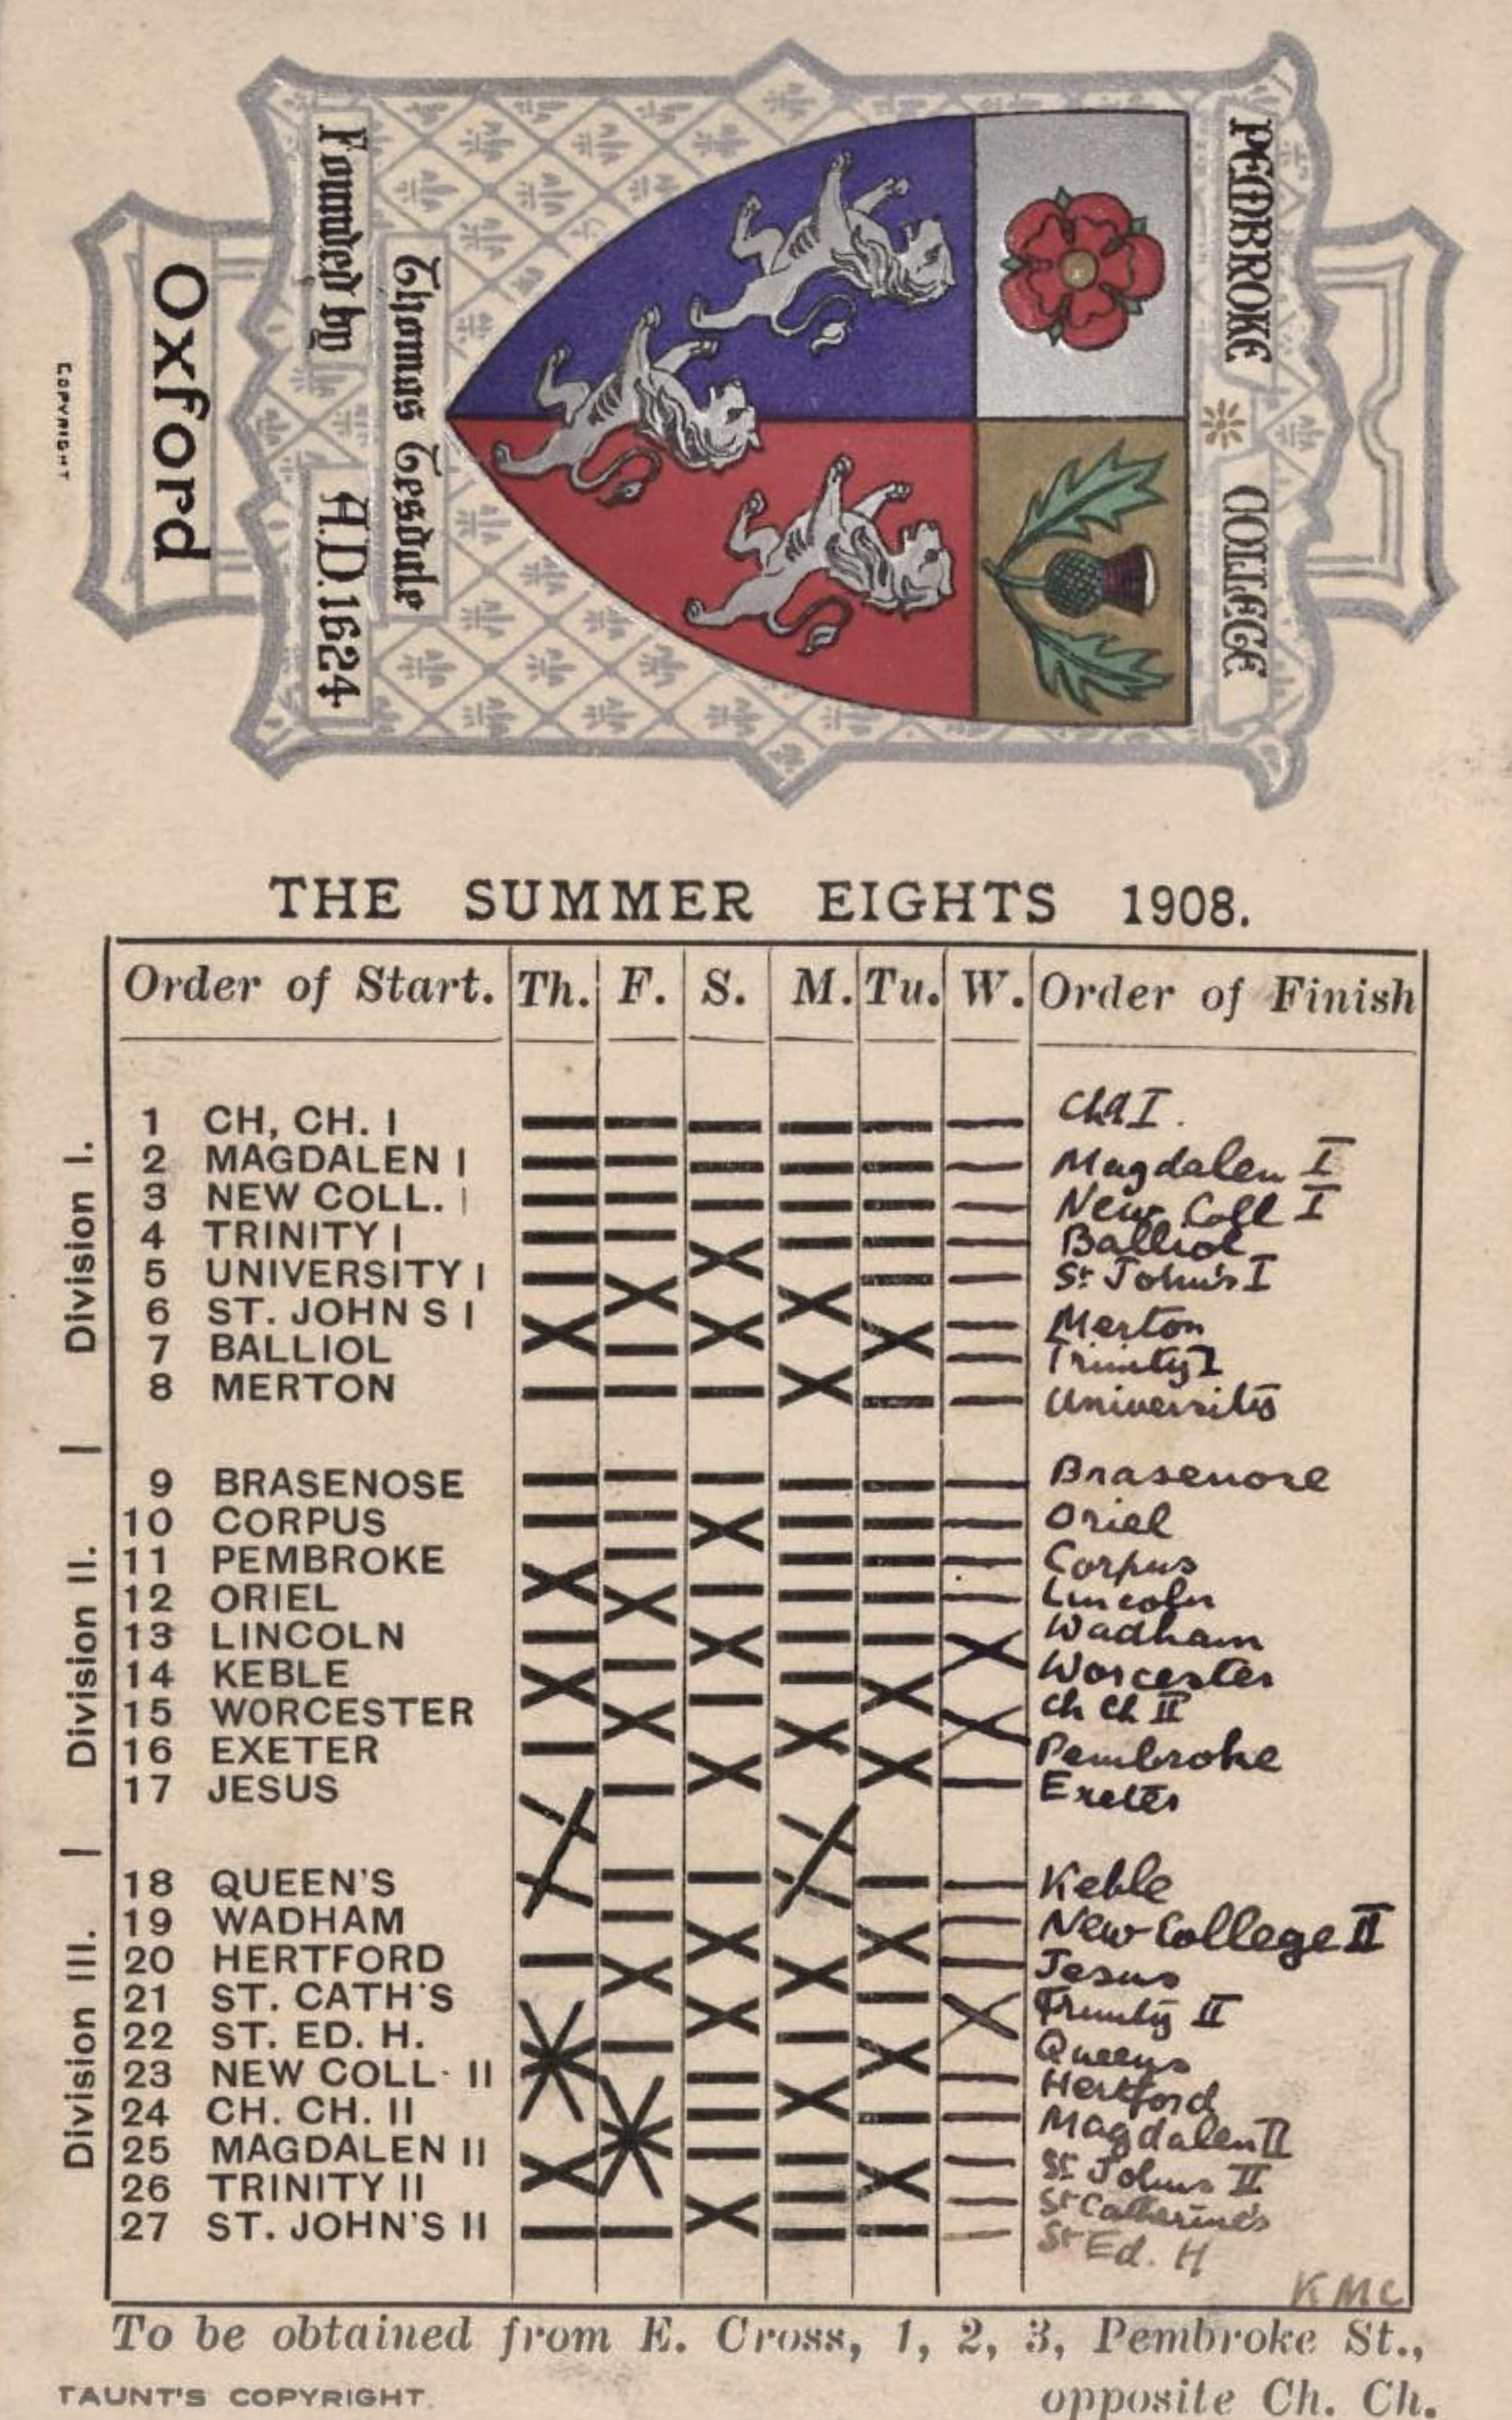 PEMBROKE COLLEGE
Thomas Tesdale
Founded by A.D. 1624
Oxford
COPYRIGHT
THE SUMMER EIGHTS 1908.
Order of Start. Th. F. S. M. Tu. W. Order of Finish
Division I.
1 CH, CH. I Ch Ch I.
2 MAGDALEN I Magdalen I
3 NEW COLL. I New Coll I
4 TRINITY I Balliol
5 UNIVERSITY I St John's I
6 ST. JOHN S I Merton
7 BALLIOL Trinity I
8 MERTON University
Division II.
9 BRASENOSE Brasenose
10 CORPUS Oriel
11 PEMBROKE Corpus
12 ORIEL Lincoln
13 LINCOLN Wadham
14 KEBLE Worcester
15 WORCESTER Ch Ch II
16 EXETER Pembroke
17 JESUS Exeter
Division III.
18 QUEEN'S Keble
19 WADHAM New College II
20 HERTFORD Jesus
21 ST. CATH'S Trinity II
22 ST. ED. H. Queens
23 NEW COLL. II Hertford
24 CH. CH. II Magdalen II
25 MAGDALEN II St Johns II
26 TRINITY II St Catherine's
27 ST. JOHN'S II St Ed. H
KMC
To be obtained from E. Cross, 1, 2, 3, Pembroke St.,
opposite Ch. Ch.
TAUNT'S COPYRIGHT.